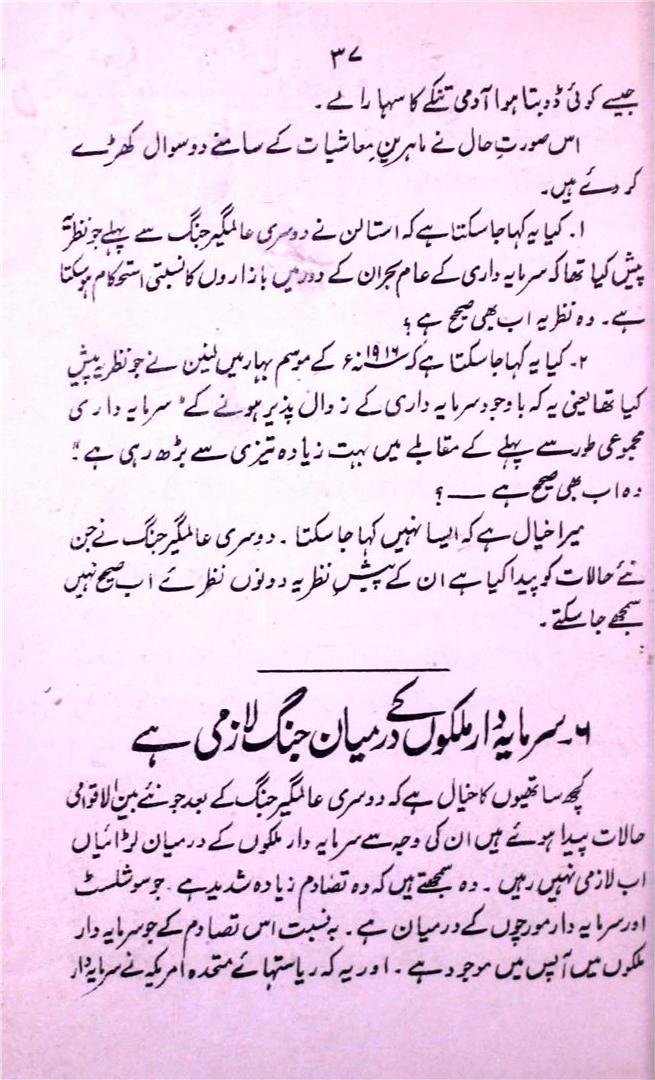 ۳۷
جیسے کوئی ڈوبتا ہوا آدمی تنکے کا سہارا لے۔
اس صورتِ حال نے ماہرینِ معاشیات کے سامنے دو سوال کھڑے
کر دئے ہیں۔
۱۔ کیا یہ کہا جا سکتا ہے کہ استالن نے دوسری عالمگیر جنگ سے پہلے جو نظریہ
پیش کیا تھا کہ سرمایہ داری کے عام بحران کے دور میں بازاروں کا نسبتی استحکام ہو سکتا
ہے۔ وہ نظریہ اب بھی صحیح ہے ؟
۲۔ کیا یہ کہا جا سکتا ہے کہ ۱۹۱۶ء کے موسم بہار میں لینن نے جو نظریہ پیش
کیا تھا یعنی یہ کہ باوجود سرمایہ داری کے زوال پذیر ہونے کے "سرمایہ داری
مجموعی طور سے پہلے کے مقابلے میں بہت زیادہ تیزی سے بڑھ رہی ہے"
وہ اب بھی صحیح ہے — ؟
میرا خیال ہے کہ ایسا نہیں کہا جا سکتا۔ دوسری عالمگیر جنگ نے جن
نئے حالات کو پیدا کیا ہے ان کے پیشِ نظر یہ دونوں نظرئے اب صحیح نہیں
سمجھے جا سکتے۔
۶۔ سرمایہ دار ملکوں کے درمیان جنگ لازمی ہے
کچھ ساتھیوں کا خیال ہے کہ دوسری عالمگیر جنگ کے بعد جو نئے بین الاقوامی
حالات پیدا ہوئے ہیں ان کی وجہ سے سرمایہ دار ملکوں کے درمیان لڑائیاں
اب لازمی نہیں رہیں۔ وہ سمجھتے ہیں کہ وہ تصادم زیادہ شدید ہے۔ جو سوشلسٹ
اور سرمایہ دار مورچوں کے درمیان ہے۔ بہ نسبت اس تصادم کے جو سرمایہ دار
ملکوں میں آپس میں موجود ہے۔ اور یہ کہ ریاستہائے متحدہ امریکہ نے سرمایہ دار